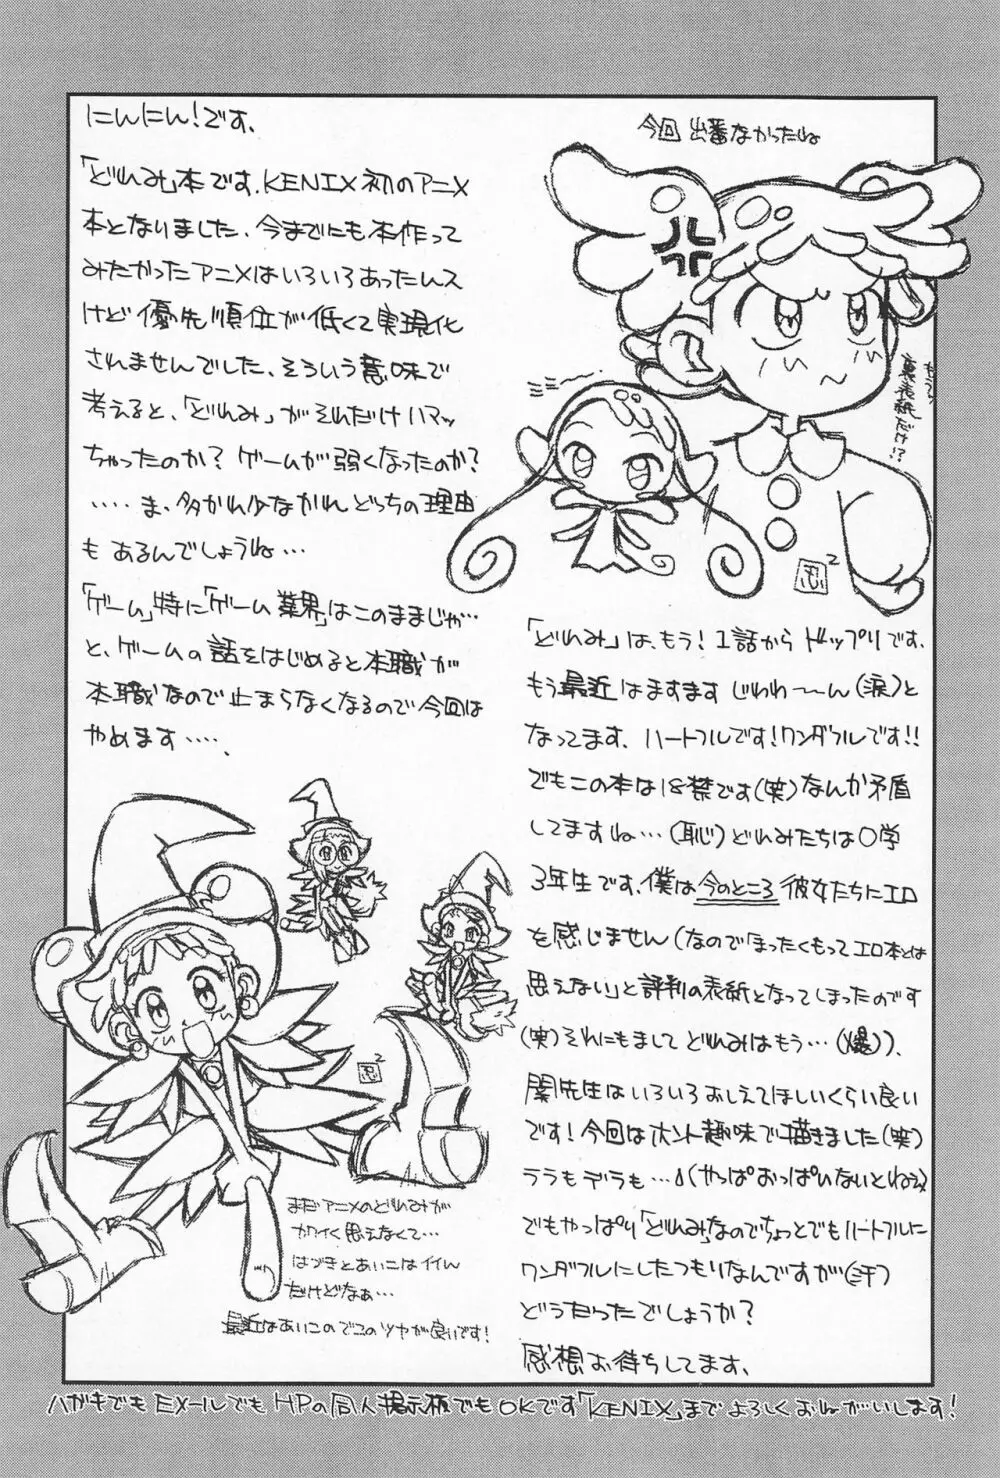 にんにん!です、
「どれみ」本です、KENIX初のアニメ
本となりました、今までにも本作って
みたかったアニメはいろいろあったんス
けど優先順位が低くて実現化
されませんでした、そういう意味で
考えると、「どれみ」がそれだけハマッ
ちゃったのか?ゲームが弱くなったのか?
‥‥ま、多かれ少なかれどっちの理由
もあるんでしょうね…
「ゲーム」特に「ゲーム業界」はこのままじゃ…
と、ゲームの話をはじめると本職が
本職なので止まらなくなるので今回は
やめます‥‥、
今回出番なかったね
もうん
裏表紙だけ!?
忍2
「どれみ」は、もう!1話からドップリです、
もう最近はますますじわわ〜ん(涙)と
なってます、ハートフルです!ワンダフルです!!
でもこの本は18禁です(笑)なんか矛盾
してますね…(恥)どれみたちは〇学
3年生です、僕は今のところ彼女たちにエロ
を感じません(なので「まったくもってエロ本とは
思えない」と評判の表紙となってしまったのです
(笑)それにもましてどれみはもう…(爆))、
関先生はいろいろおしえてほしいくらい良い
です!今回はホント趣味で描きました(笑)
ララもデラも…(やっぱおっぱいないとねぇ)
でもやっぱり「どれみ」なのでちょっとでもハートフルに
ワンダフルにしたつもりなんですが(汗)
どうだったでしょうか?
感想お待ちしてます、
忍2
まだアニメのどれみが
カワイく思えなくて…
はづきとあいこはイイん
だけどなぁ…
最近はあいこのでこのツヤが良いです!
ハガキでもEメールでもHPの同人掲示板でもOKです「KENIX」までよろしくおねがいします!